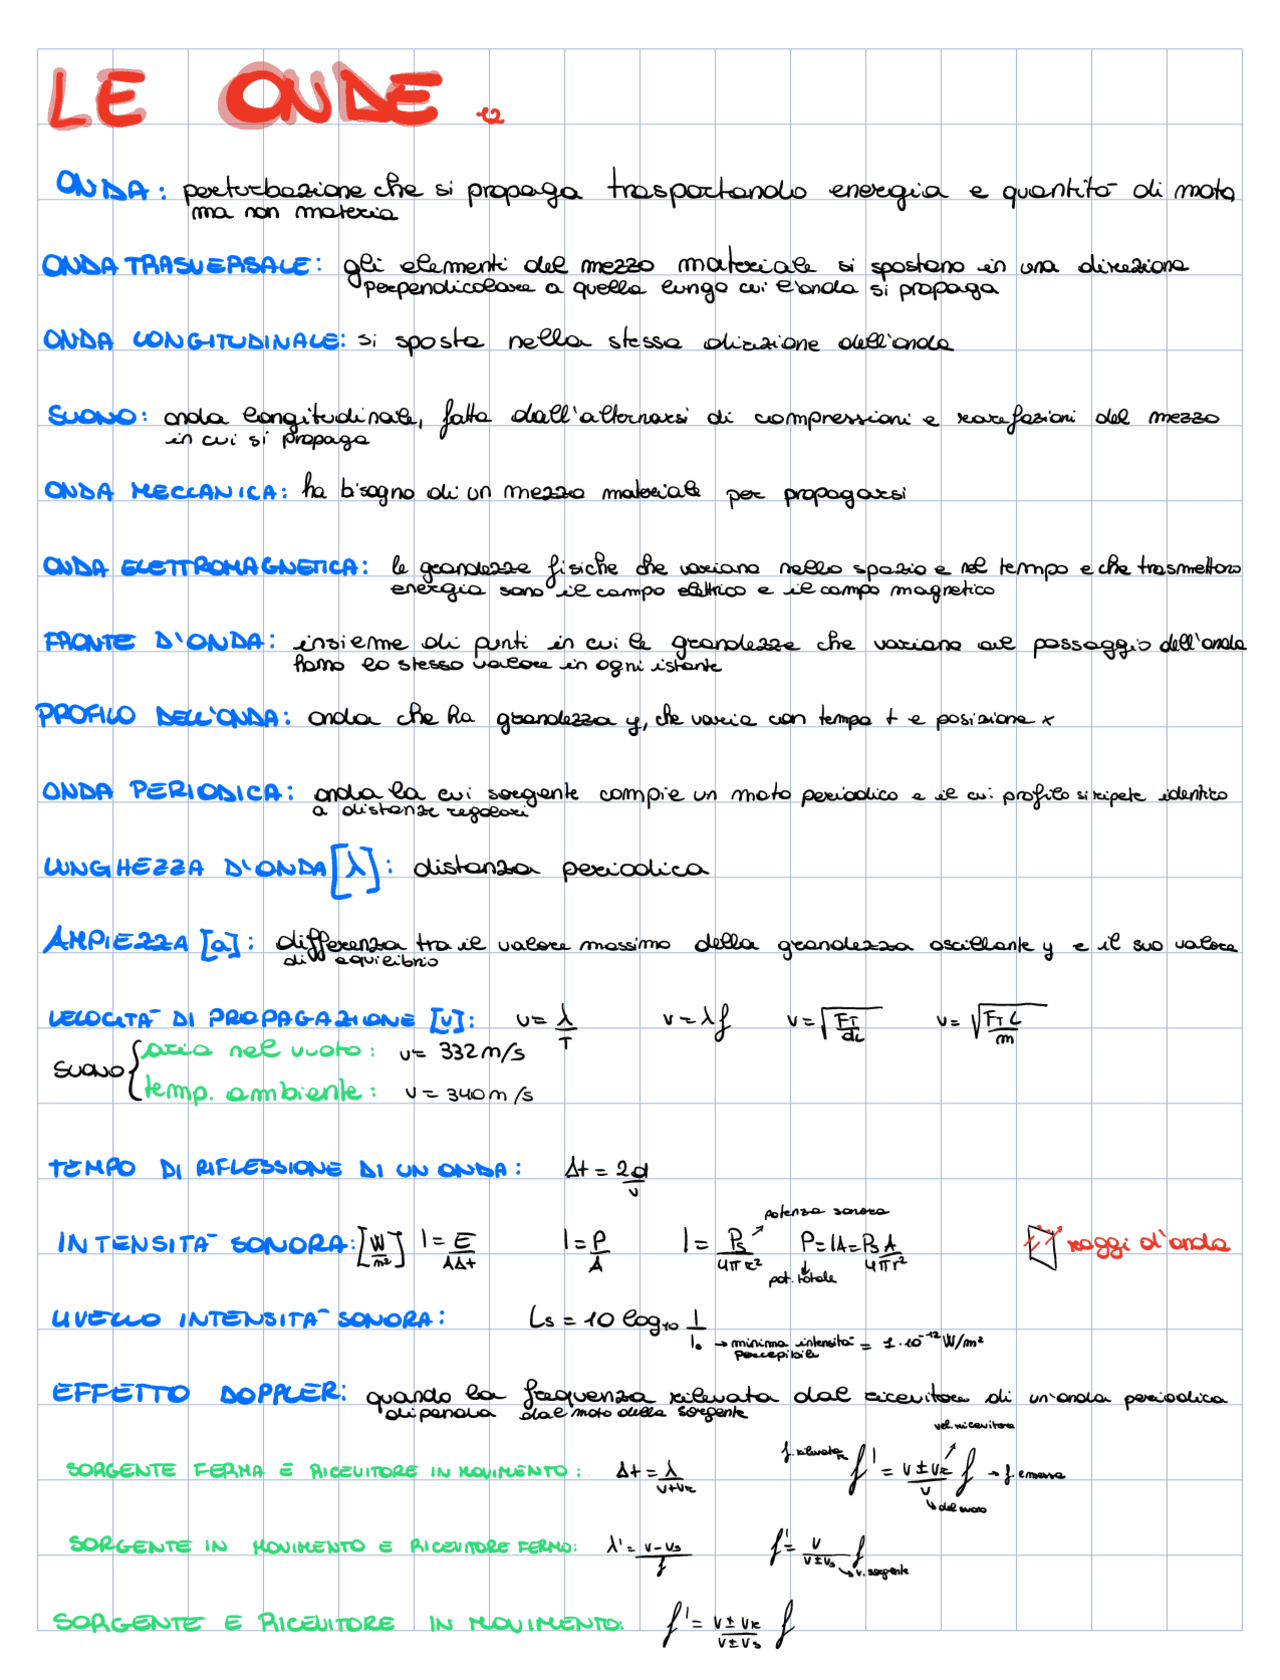 LE ONDE 12
ONDA: perturbazione che si propaga trasportando energia e quantità di moto,
ma non materia
ONDA TRASVERSALE: gli elementi del mezzo materiale si spostano in una direzione
perpendicolare a quella lungo cui l'onda si propaga
ONDA LONGITUDINALE: si sposta nella stessa direzione dell'onda
SUONO: onda longitudinale, fatta dall'alternarsi di compressioni e rarefazioni del mezzo
in cui si propaga
ONDA MECCANICA: ha bisogno di un mezzo materiale per propagarsi
ONDA ELETTROMAGNETICA: le grandezze fisiche che variano nello spazio e nel tempo e che trasmettono
energia sono il campo elettrico e il campo magnetico
FRONTE D'ONDA: insieme di punti in cui le grandezze che variano al passaggio dell'onda
hanno lo stesso valore in ogni istante
PROFILO DELL'ONDA: onda che ha grandezza y, che varia con tempo t e posizione x
ONDA PERIODICA: onda la cui sorgente compie un moto periodico e il cui profilo si ripete identico
a distanze regolari
LUNGHEZZA D'ONDA [λ]: distanza periodica
AMPIEZZA [a]: differenza tra il valore massimo della grandezza oscillante y e il suo valore
di equilibrio
VELOCITÀ DI PROPAGAZIONE [v]: v = λ/T v = λf v = √(F_T/d_L) v = √(F_T L/m)
SUONO { aria nel vuoto: v = 332 m/s
temp. ambiente: v = 340 m/s
TEMPO DI RIFLESSIONE DI UN ONDA: Δt = 2d/v
INTENSITÀ SONORA: [W/m²] I = E/AΔt I = P/A I = Ps/4πr² → potenza sonora P = IA = Ps A/4πr² ↓ pot. totale raggi d'onda
LIVELLO INTENSITÀ SONORA: Ls = 10 log₁₀ I/I₀ → minima intensità percepibile = 1·10⁻¹² W/m²
EFFETTO DOPPLER: quando la frequenza rilevata dal ricevitore di un'onda periodica
dipende dal moto della sorgente
SORGENTE FERMA E RICEVITORE IN MOVIMENTO: Δt = λ/v+vr f. rilevata f' = v±vr/v f → f. emessa
vel. ricevitore
del suono
SORGENTE IN MOVIMENTO E RICEVITORE FERMO: λ' = v-vs/f f' = v/v±vs f → v. sorgente
SORGENTE E RICEVITORE IN MOVIMENTO: f' = v±vr/v±vs f